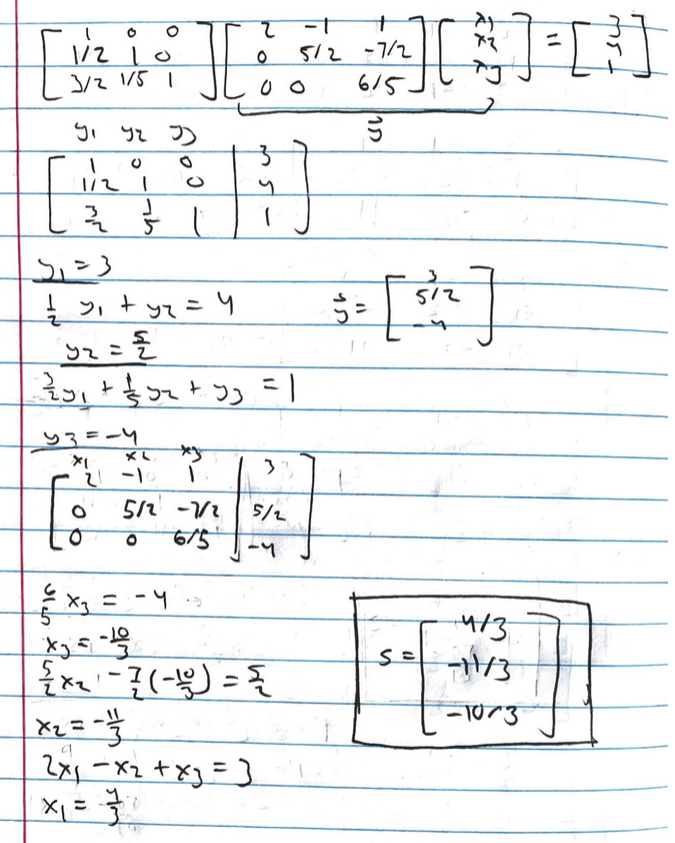 [1 0 0; 1/2 1 0; 3/2 1/5 1] [2 -1 1; 0 5/2 -7/2; 0 0 6/5] [x1; x2; x3] = [3; 4; 1]
y⃗
y1 y2 y3
[1 0 0 | 3
1/2 1 0 | 4
3/2 1/5 1 | 1]
y1 = 3
1/2 y1 + y2 = 4
y⃗ = [3; 5/2; -4]
y2 = 5/2
3/2 y1 + 1/5 y2 + y3 = 1
y3 = -4
x1 x2 x3
[2 -1 1 | 3
0 5/2 -7/2 | 5/2
0 0 6/5 | -4]
6/5 x3 = -4
x3 = -10/3
5/2 x2 - 7/2 (-10/3) = 5/2
x2 = -11/3
2x1 - x2 + x3 = 3
x1 = 4/3
S = [4/3; -11/3; -10/3]